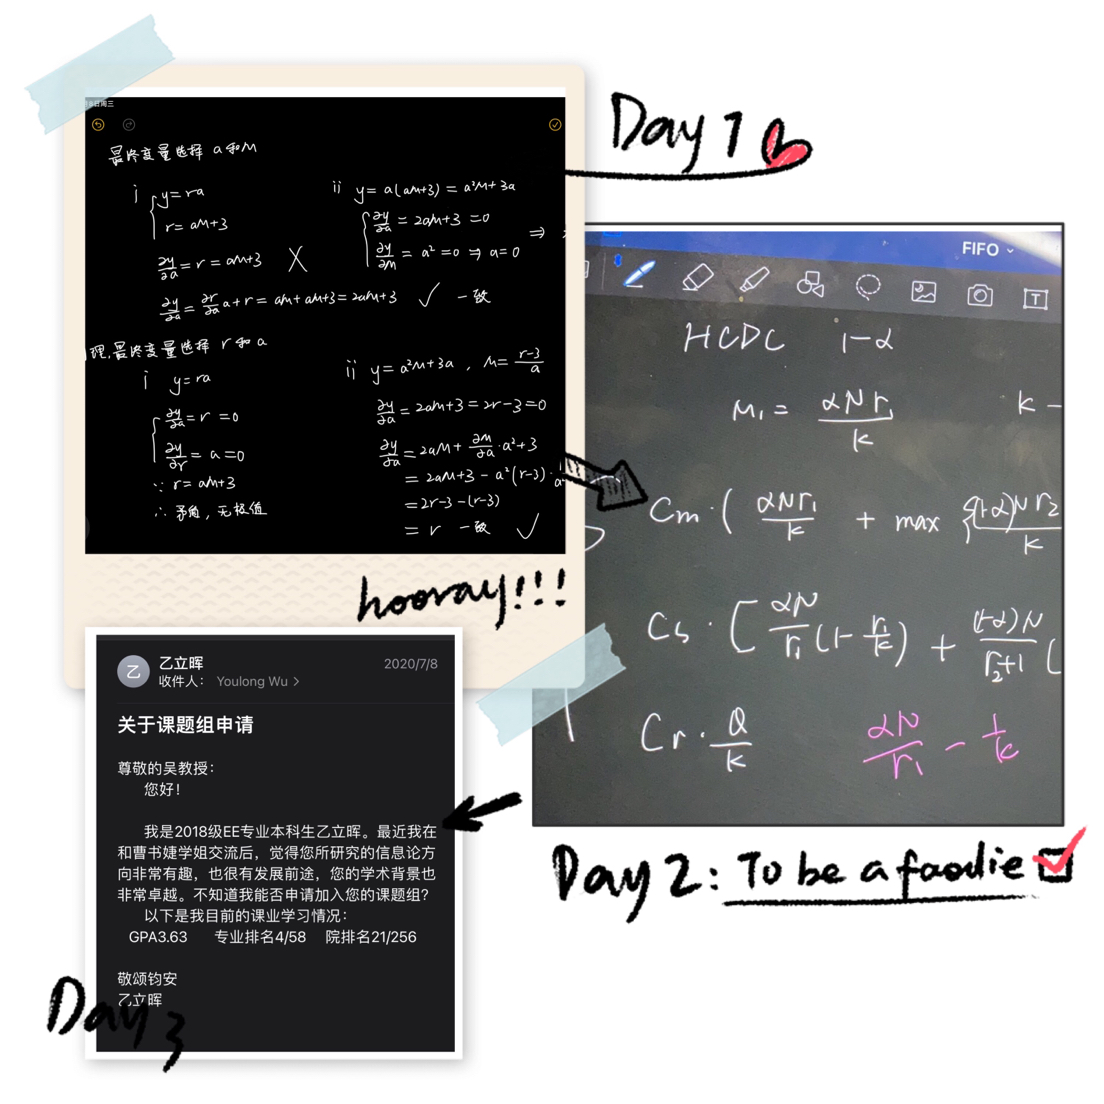 Day 1
6日周三
最终变量选择 a和M
i y=ra
r=aM+3
∂y/∂a=r=aM+3 X
∂y/∂a=∂r/∂a a+r=aM+aM+3=2aM+3 ✓ 一致
ii y=a(aM+3)=a²M+3a
∂y/∂a=2aM+3=0
∂y/∂M=a²=0⇒a=0
⇒
理,最终变量选择 r和a
i y=ra
∂y/∂a=r=0
∂y/∂r=a=0
∵ r=aM+3
∴ 矛盾,无极值
ii y=a²M+3a , M=r-3/a
∂y/∂a=2aM+3=2r-3=0
∂y/∂a=2aM+∂M/∂a·a²+3
=2aM+3-a²(r-3)·1/a²
=2r-3-(r-3)
=r 一致 ✓
hooray!!!
FIFO
T
HCDC 1-α
M₁=αNr₁/K K-
Cm·(αNr₁/K + max {(1-α)Nr₂/K
Cs·[αN/r₁(1-r₁/K)+(1-α)N/r₂+1(
Cr·Q/K αN/r₁-1/K
Day 2: To be a foodie
乙
乙立晖 2020/7/8
收件人: Youlong Wu >
关于课题组申请
尊敬的吴教授:
您好!
我是2018级EE专业本科生乙立晖。最近我在
和曹书婕学姐交流后,觉得您所研究的信息论方
向非常有趣,也很有发展前途,您的学术背景也
非常卓越。不知道我能否申请加入您的课题组?
以下是我目前的课业学习情况:
GPA3.63 专业排名4/58 院排名21/256
敬颂钧安
乙立晖
Day 3